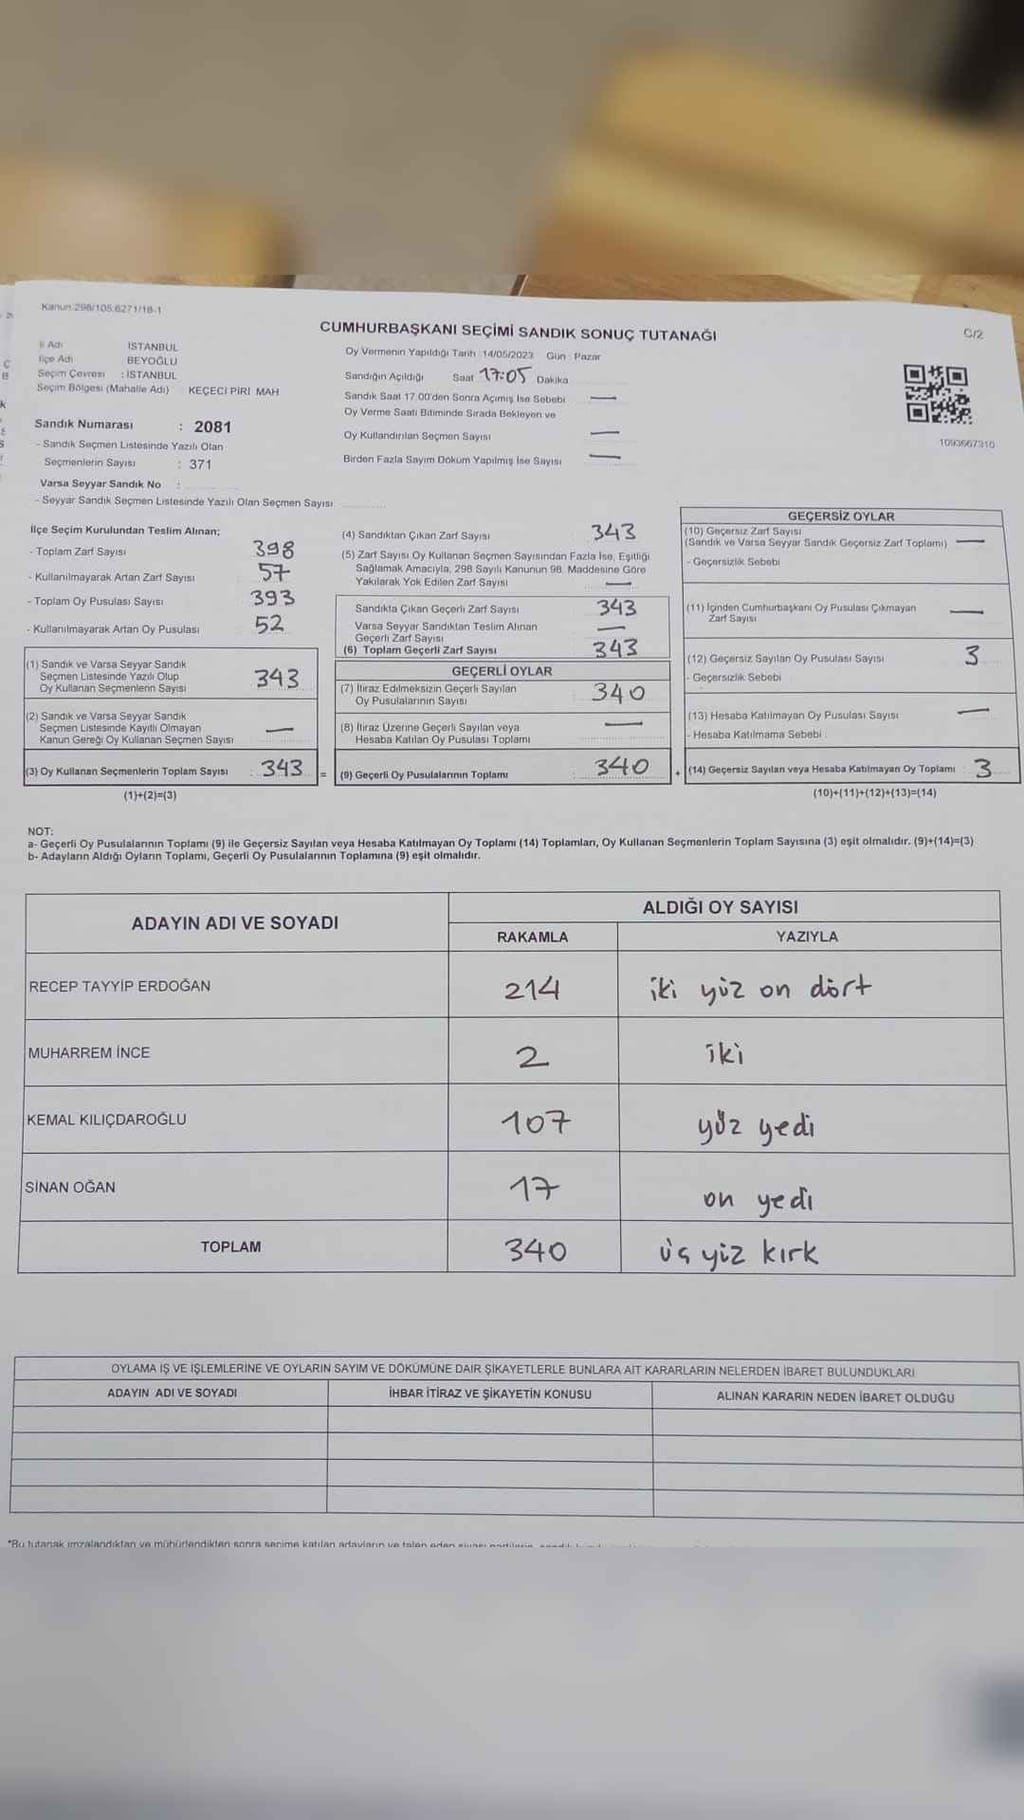 Kanun:298/105,6271/18-1
CUMHURBAŞKANI SEÇİMİ SANDIK SONUÇ TUTANAĞI
C/2
İl Adı İSTANBUL
İlçe Adı BEYOĞLU
Seçim Çevresi : İSTANBUL
Seçim Bölgesi (Mahalle Adı) KEÇECİ PİRİ MAH
Oy Vermenin Yapıldığı Tarih 14/05/2023 Gün : Pazar
Sandığın Açıldığı Saat 17:05 Dakika
Sandık Saat 17.00'den Sonra Açımış İse Sebebi —
Oy Verme Saati Bitiminde Sırada Bekleyen ve
Oy Kullandırılan Seçmen Sayısı —
Birden Fazla Sayım Döküm Yapılmış İse Sayısı —
1093667310
Sandık Numarası : 2081
- Sandık Seçmen Listesinde Yazılı Olan
Seçmenlerin Sayısı : 371
Varsa Seyyar Sandık No :
- Seyyar Sandık Seçmen Listesinde Yazılı Olan Seçmen Sayısı
İlçe Seçim Kurulundan Teslim Alınan;
- Toplam Zarf Sayısı 398
- Kullanılmayarak Artan Zarf Sayısı 57
- Toplam Oy Pusulası Sayısı 393
- Kullanılmayarak Artan Oy Pusulası 52
(1) Sandık ve Varsa Seyyar Sandık
Seçmen Listesinde Yazılı Olup
Oy Kullanan Seçmenlerin Sayısı 343
(2) Sandık ve Varsa Seyyar Sandık
Seçmen Listesinde Kayıtlı Olmayan
Kanun Gereği Oy Kullanan Seçmen Sayısı —
(3) Oy Kullanan Seçmenlerin Toplam Sayısı : 343 =
(1)+(2)=(3)
(4) Sandıktan Çıkan Zarf Sayısı 343
(5) Zarf Sayısı Oy Kullanan Seçmen Sayısından Fazla İse, Eşitliği
Sağlamak Amacıyla, 298 Sayılı Kanunun 98. Maddesine Göre
Yakılarak Yok Edilen Zarf Sayısı —
Sandıkta Çıkan Geçerli Zarf Sayısı 343
Varsa Seyyar Sandıktan Teslim Alınan
Geçerli Zarf Sayısı —
(6) Toplam Geçerli Zarf Sayısı 343
GEÇERLİ OYLAR
(7) İtiraz Edilmeksizin Geçerli Sayılan
Oy Pusulalarının Sayısı 340
(8) İtiraz Üzerine Geçerli Sayılan veya
Hesaba Katılan Oy Pusulası Toplamı —
(9) Geçerli Oy Pusulalarının Toplamı : 340 +
GEÇERSİZ OYLAR
(10) Geçersiz Zarf Sayısı
(Sandık ve Varsa Seyyar Sandık Geçersiz Zarf Toplamı) —
- Geçersizlik Sebebi
(11) İçinden Cumhurbaşkanı Oy Pusulası Çıkmayan
Zarf Sayısı —
(12) Geçersiz Sayılan Oy Pusulası Sayısı 3
- Geçersizlik Sebebi
(13) Hesaba Katılmayan Oy Pusulası Sayısı —
- Hesaba Katılmama Sebebi :
(14) Geçersiz Sayılan veya Hesaba Katılmayan Oy Toplamı : 3
(10)+(11)+(12)+(13)=(14)
NOT:
a- Geçerli Oy Pusulalarının Toplamı (9) ile Geçersiz Sayılan veya Hesaba Katılmayan Oy Toplamı (14) Toplamları, Oy Kullanan Seçmenlerin Toplam Sayısına (3) eşit olmalıdır. (9)+(14)=(3)
b- Adayların Aldığı Oyların Toplamı, Geçerli Oy Pusulalarının Toplamına (9) eşit olmalıdır.
ADAYIN ADI VE SOYADI
ALDIĞI OY SAYISI
RAKAMLA YAZIYLA
RECEP TAYYİP ERDOĞAN 214 iki yüz on dört
MUHARREM İNCE 2 iki
KEMAL KILIÇDAROĞLU 107 yüz yedi
SİNAN OĞAN 17 on yedi
TOPLAM 340 üç yiz kırk
OYLAMA İŞ VE İŞLEMLERİNE VE OYLARIN SAYIM VE DÖKÜMÜNE DAİR ŞİKAYETLERLE BUNLARA AİT KARARLARIN NELERDEN İBARET BULUNDUKLARI
ADAYIN ADI VE SOYADI İHBAR İTİRAZ VE ŞİKAYETİN KONUSU ALINAN KARARIN NEDEN İBARET OLDUĞU
*Bu tutanak imzalandıktan ve mühürlendikten sonra seçime katılan adayların ve talep eden siyasi partilerin